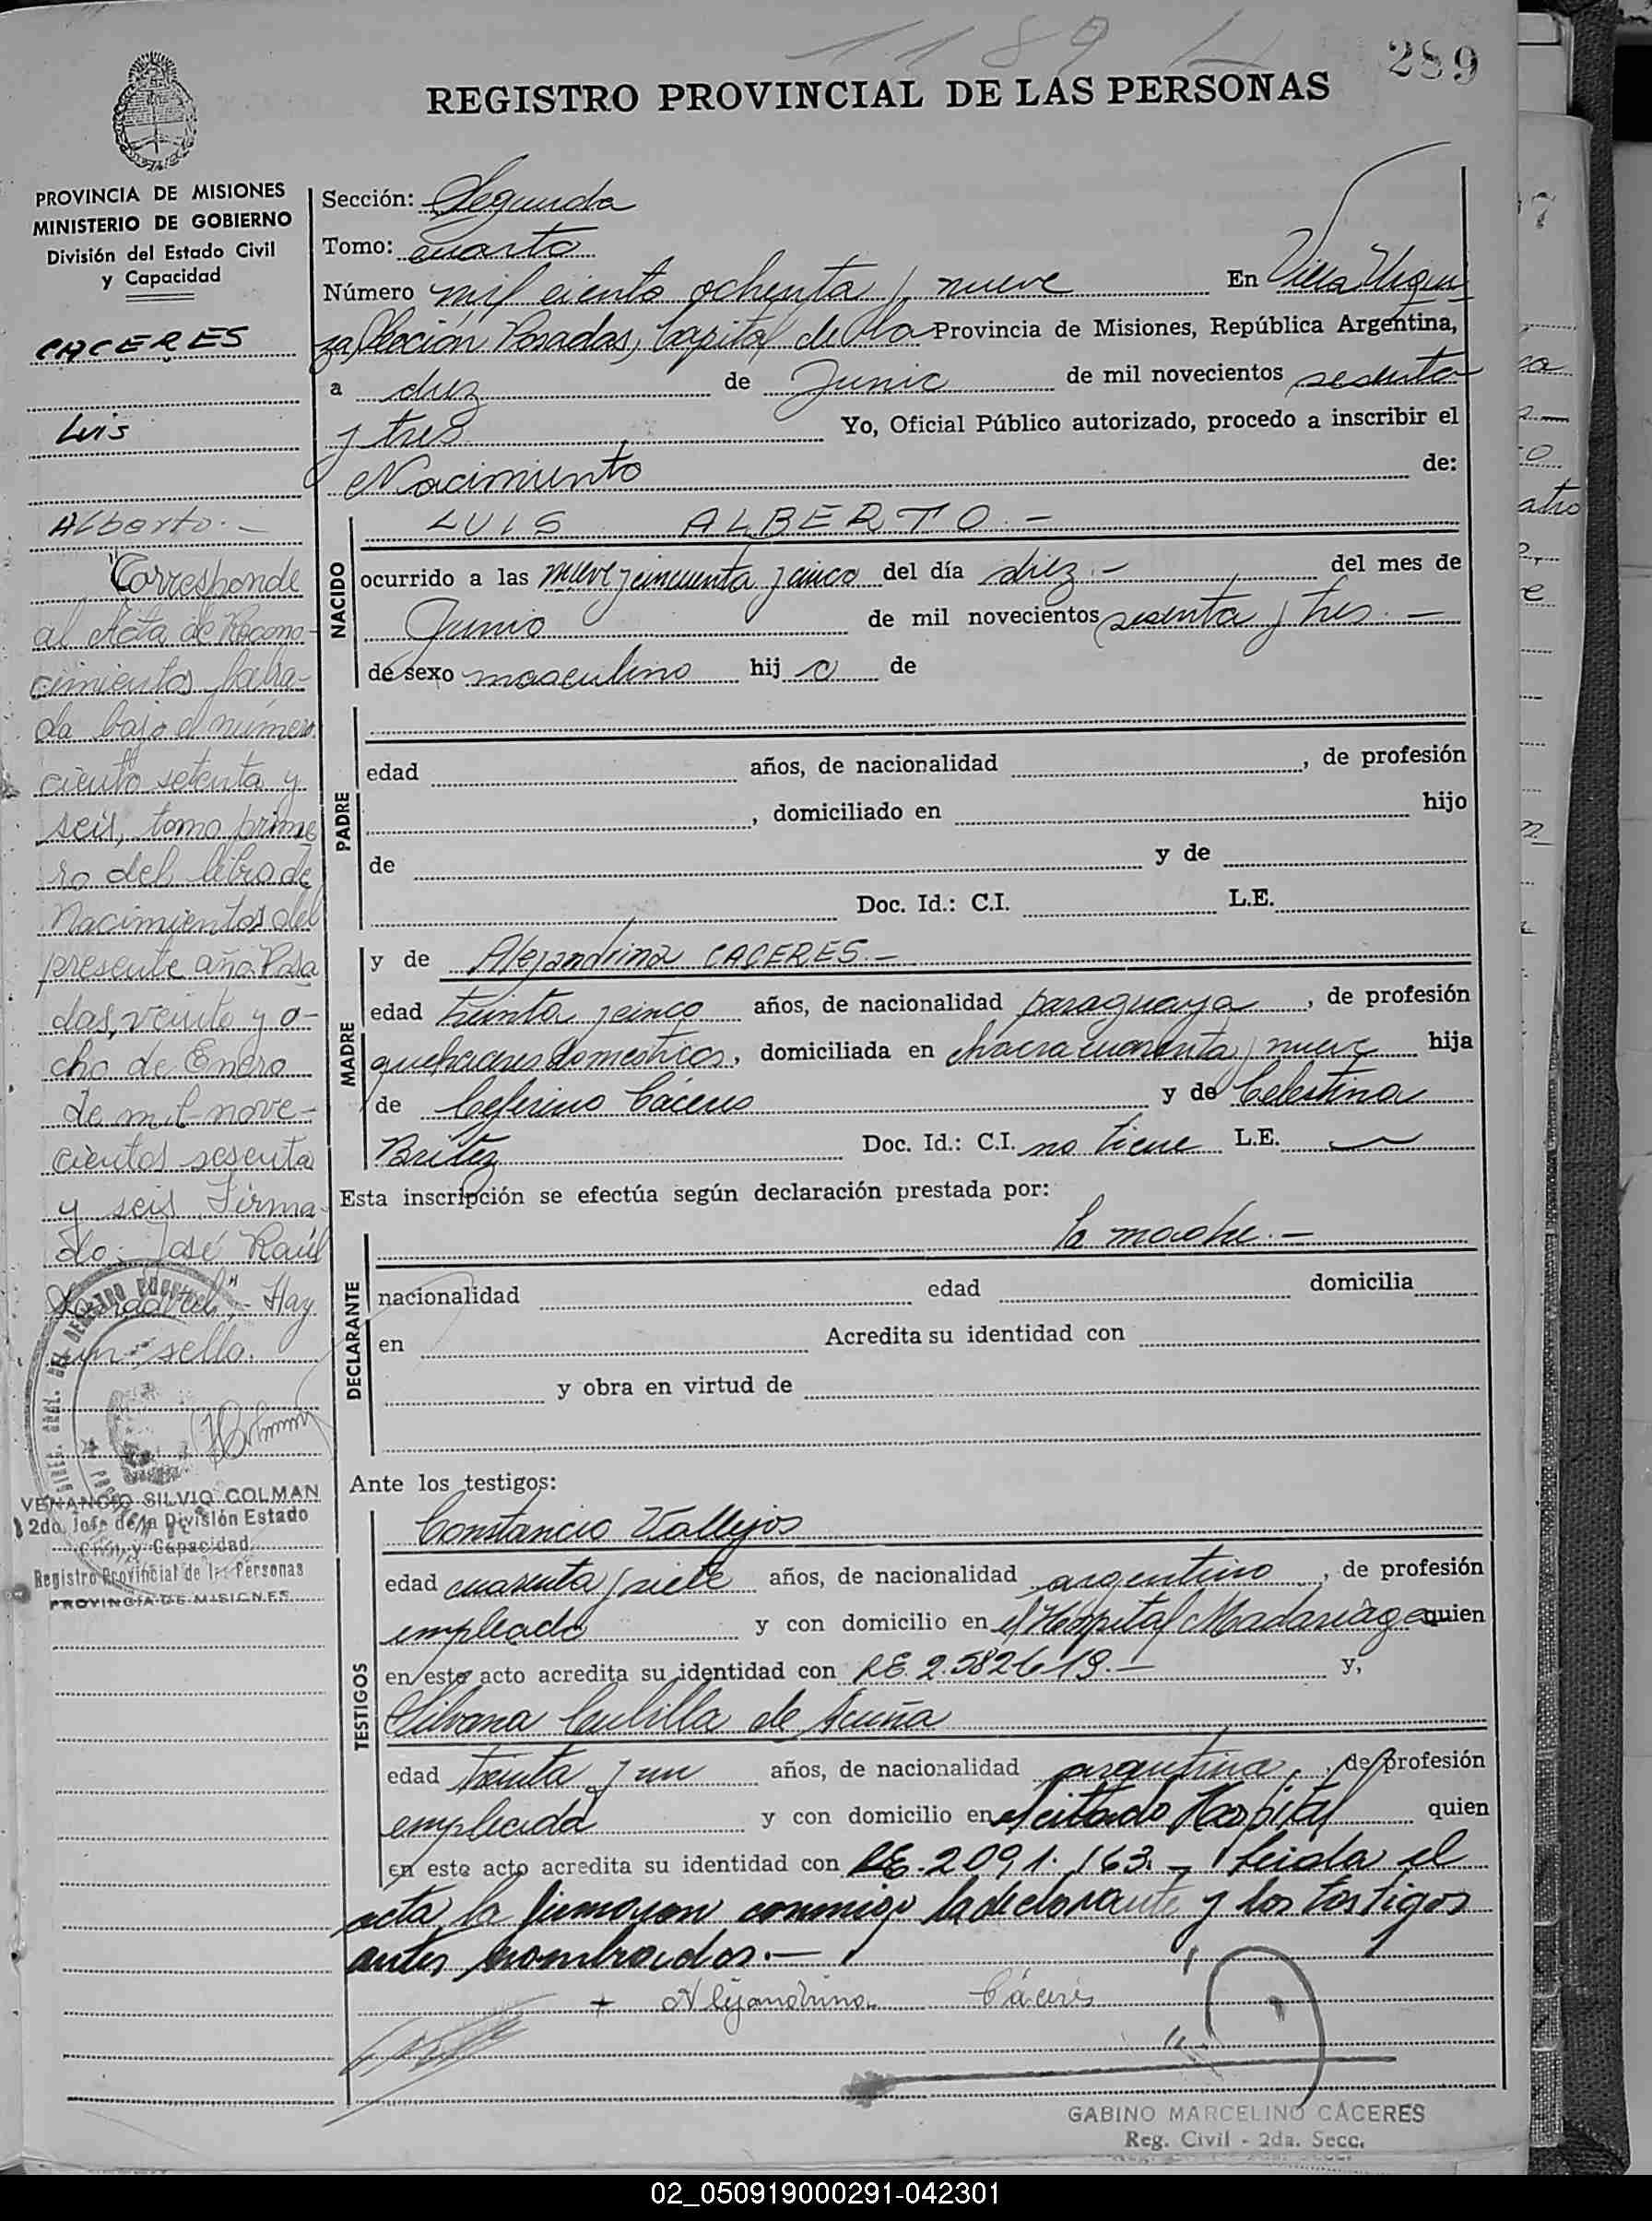 1189
289
REGISTRO PROVINCIAL DE LAS PERSONAS
PROVINCIA DE MISIONES
MINISTERIO DE GOBIERNO
División del Estado Civil
y Capacidad
CACERES
Luis
Alberto.-
"Corresponde
al Acta de Recono-
cimientos labra-
da bajo el número
ciento setenta y
seis, tomo prime
ro del libro de
Nacimientos del
presente año. Posa
das, veinte y o-
cho de Enero
de mil nove-
cientos sesenta
y seis Firma-
do: José Raúl
" - Hay
un sello.
VENANCIO SILVIO COLMAN
2do. Jefe de la División Estado
Civil y Capacidad
Registro Provincial de las Personas
PROVINCIA DE MISIONES
Sección: Segunda
Tomo: cuarto
Número mil ciento ochenta y nueve En Villa Urqui
za Posadas, Capital de la Provincia de Misiones, República Argentina,
a diez de Junio de mil novecientos sesenta
y tres Yo, Oficial Público autorizado, procedo a inscribir el
Nacimiento de:
NACIDO
LUIS ALBERTO.-
ocurrido a las nueve y cincuenta y cinco del día diez.- del mes de
Junio de mil novecientos sesenta y tres.-
de sexo masculino hij o de
PADRE
edad años, de nacionalidad , de profesión
, domiciliado en hijo
de y de
Doc. Id.: C.I. L.E.
MADRE
y de Alejandrina CACERES.-
edad treinta y cinco años, de nacionalidad paraguaya , de profesión
quehaceres domesticos, domiciliada en chacra cuarenta y nueve hija
de Ceferino Cáceres y de Celestina
Britez Doc. Id.: C.I. no tiene L.E. —
Esta inscripción se efectúa según declaración prestada por:
DECLARANTE
la madre.-
nacionalidad edad domicilia
en Acredita su identidad con
y obra en virtud de
Ante los testigos:
TESTIGOS
Constancio Vallejos
edad cuarenta y siete años, de nacionalidad argentino , de profesión
empleado y con domicilio en el Hospital Madariaga quien
en este acto acredita su identidad con y,
Silvana de Acuña
edad treinta y un años, de nacionalidad argentina , de profesión
empleada y con domicilio en el citado Hospital quien
en este acto acredita su identidad con LE. 2.091.163.- Leida el
acta, la firmaron conmigo la declarante y los testigos
antes nombrados.-
+ Alejandrina Cáceres
GABINO MARCELINO CÁCERES
Reg. Civil - 2da. Secc.
02_050919000291-042301